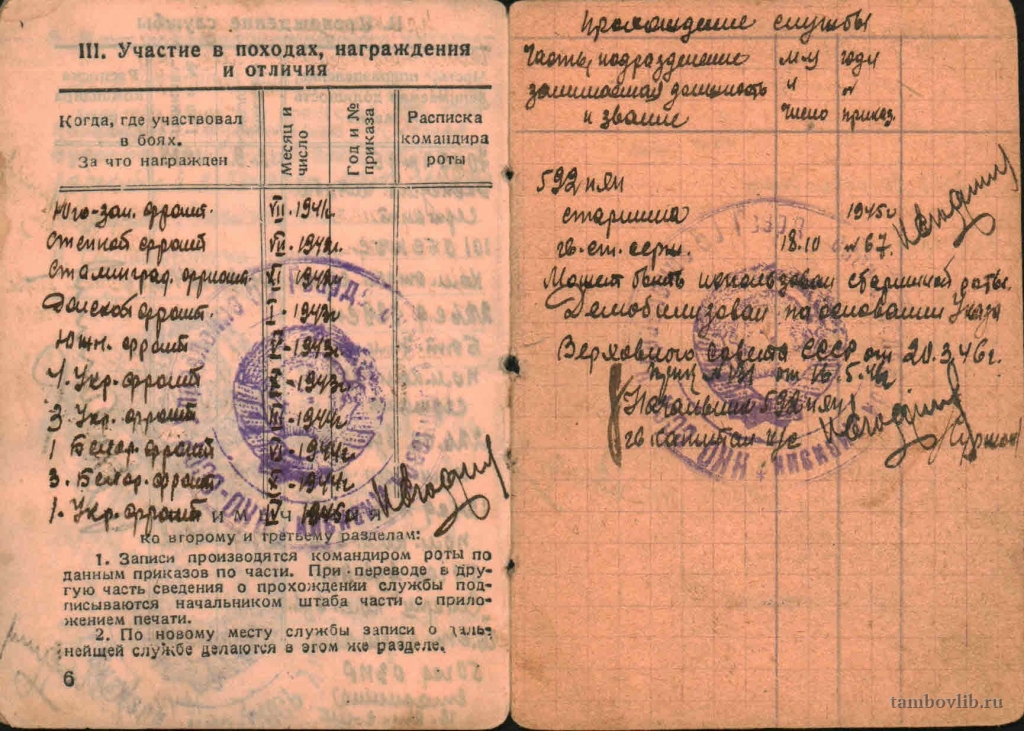 III. Участие в походах, награждения
и отличия
Когда, где участвовал
в боях.
За что награжден
Месяц и
число
Год и №
приказа
Расписка
командира
роты
Юго-зап. фронт. VII - 1941г
Степной фронт VII - 194
Сталинград. фронт. 194
Донской фронт. I - 1943г
Южн. фронт 1943г
4. Укр. фронт 1943г
3 Укр. фронт 1944г
1 Белор. фронт 1944г
3. Белор. фронт 1944г
1. Укр. фронт 1945г
ко второму и третьему разделам:
1. Записи производятся командиром роты по
данным приказов по части. При переводе в дру-
гую часть сведения о прохождении службы под-
писываются начальником штаба части с прило-
жением печати.
2. По новому месту службы записи о даль-
нейшей службе делаются в этом же разделе.
6
Прохождение службы
Часть, подразделение
занимаемая должность
и звание
мм
и
число
годы
и
приказ.
592
старшина 1945г
гв. ст. серж. 18.10 №67.
Может быть использован старшиной роты.
Демобилизован на основании Указа
Верховного Совета СССР от 20.3.46г.
Начальник 592
гв. капитан
tambovlib.ru